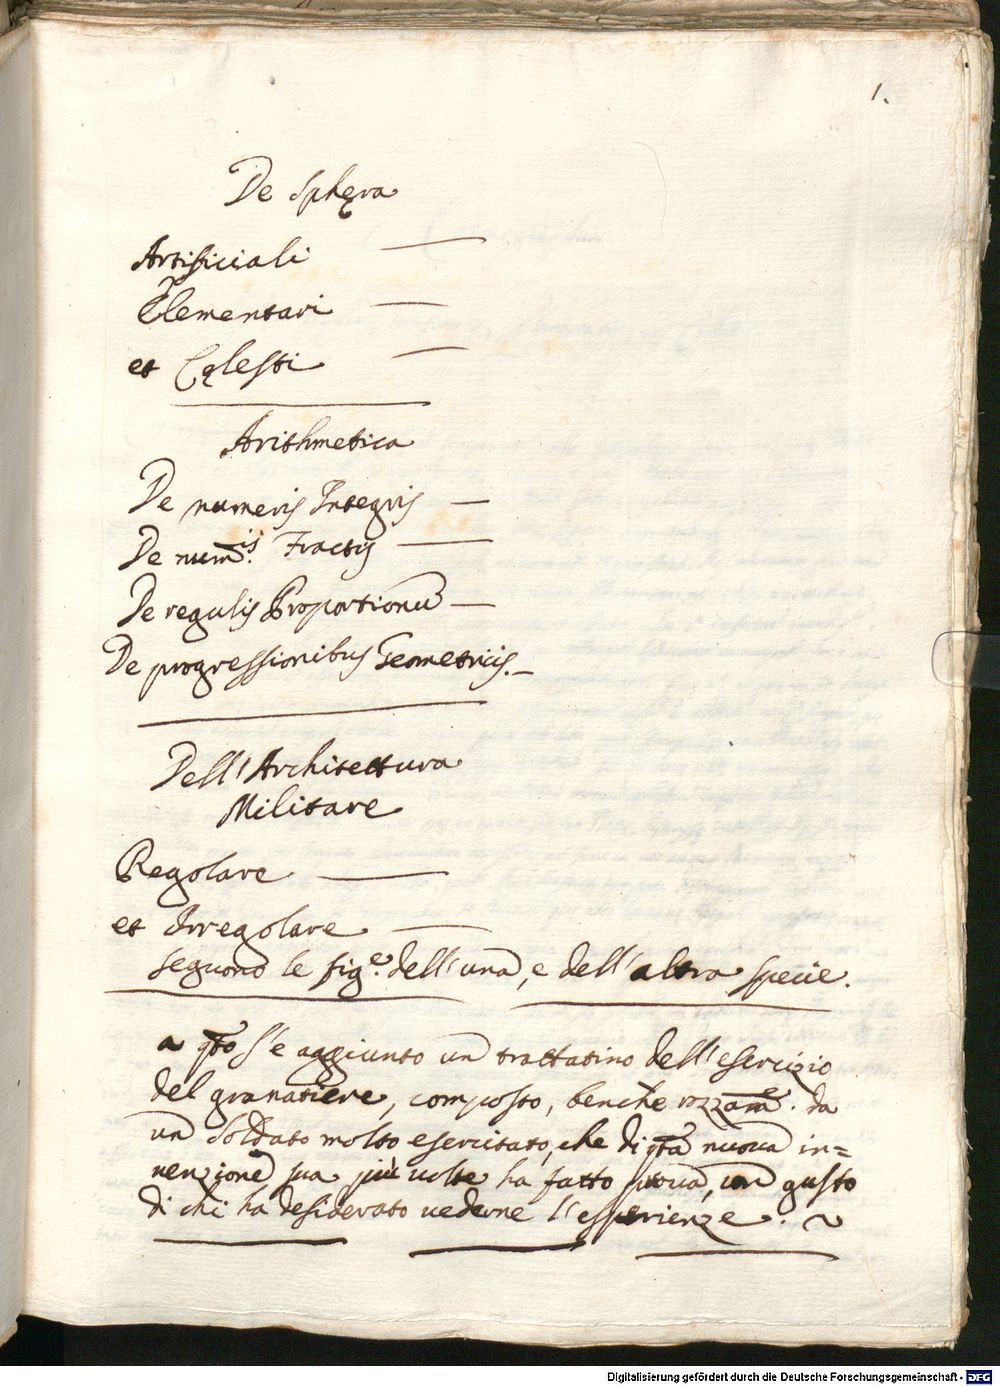 1.
De sphęra
Artificiali
Elementari
et Cęlesti
Arithmetica
De numeris Integris
De num.is Fractis
De regulis Proportionũ
De progressionibus Geometricis.
Dell'Architettura
Militare
Regolare
et Irregolare
seguono le fig.e dell'una, e dell'altra specie.
a q̃to s'e aggiunto un trattatino dell'esercizio
del granatiere, composto, benche rozzam.e da
un soldato molto esercitato, che di q̃ta nuova in=
venzione sua più volte ha fatto prova, con gusto
di chi ha desiderato vederne l'esperienze.
Digitalisierung gefördert durch die Deutsche Forschungsgemeinschaft - DFG